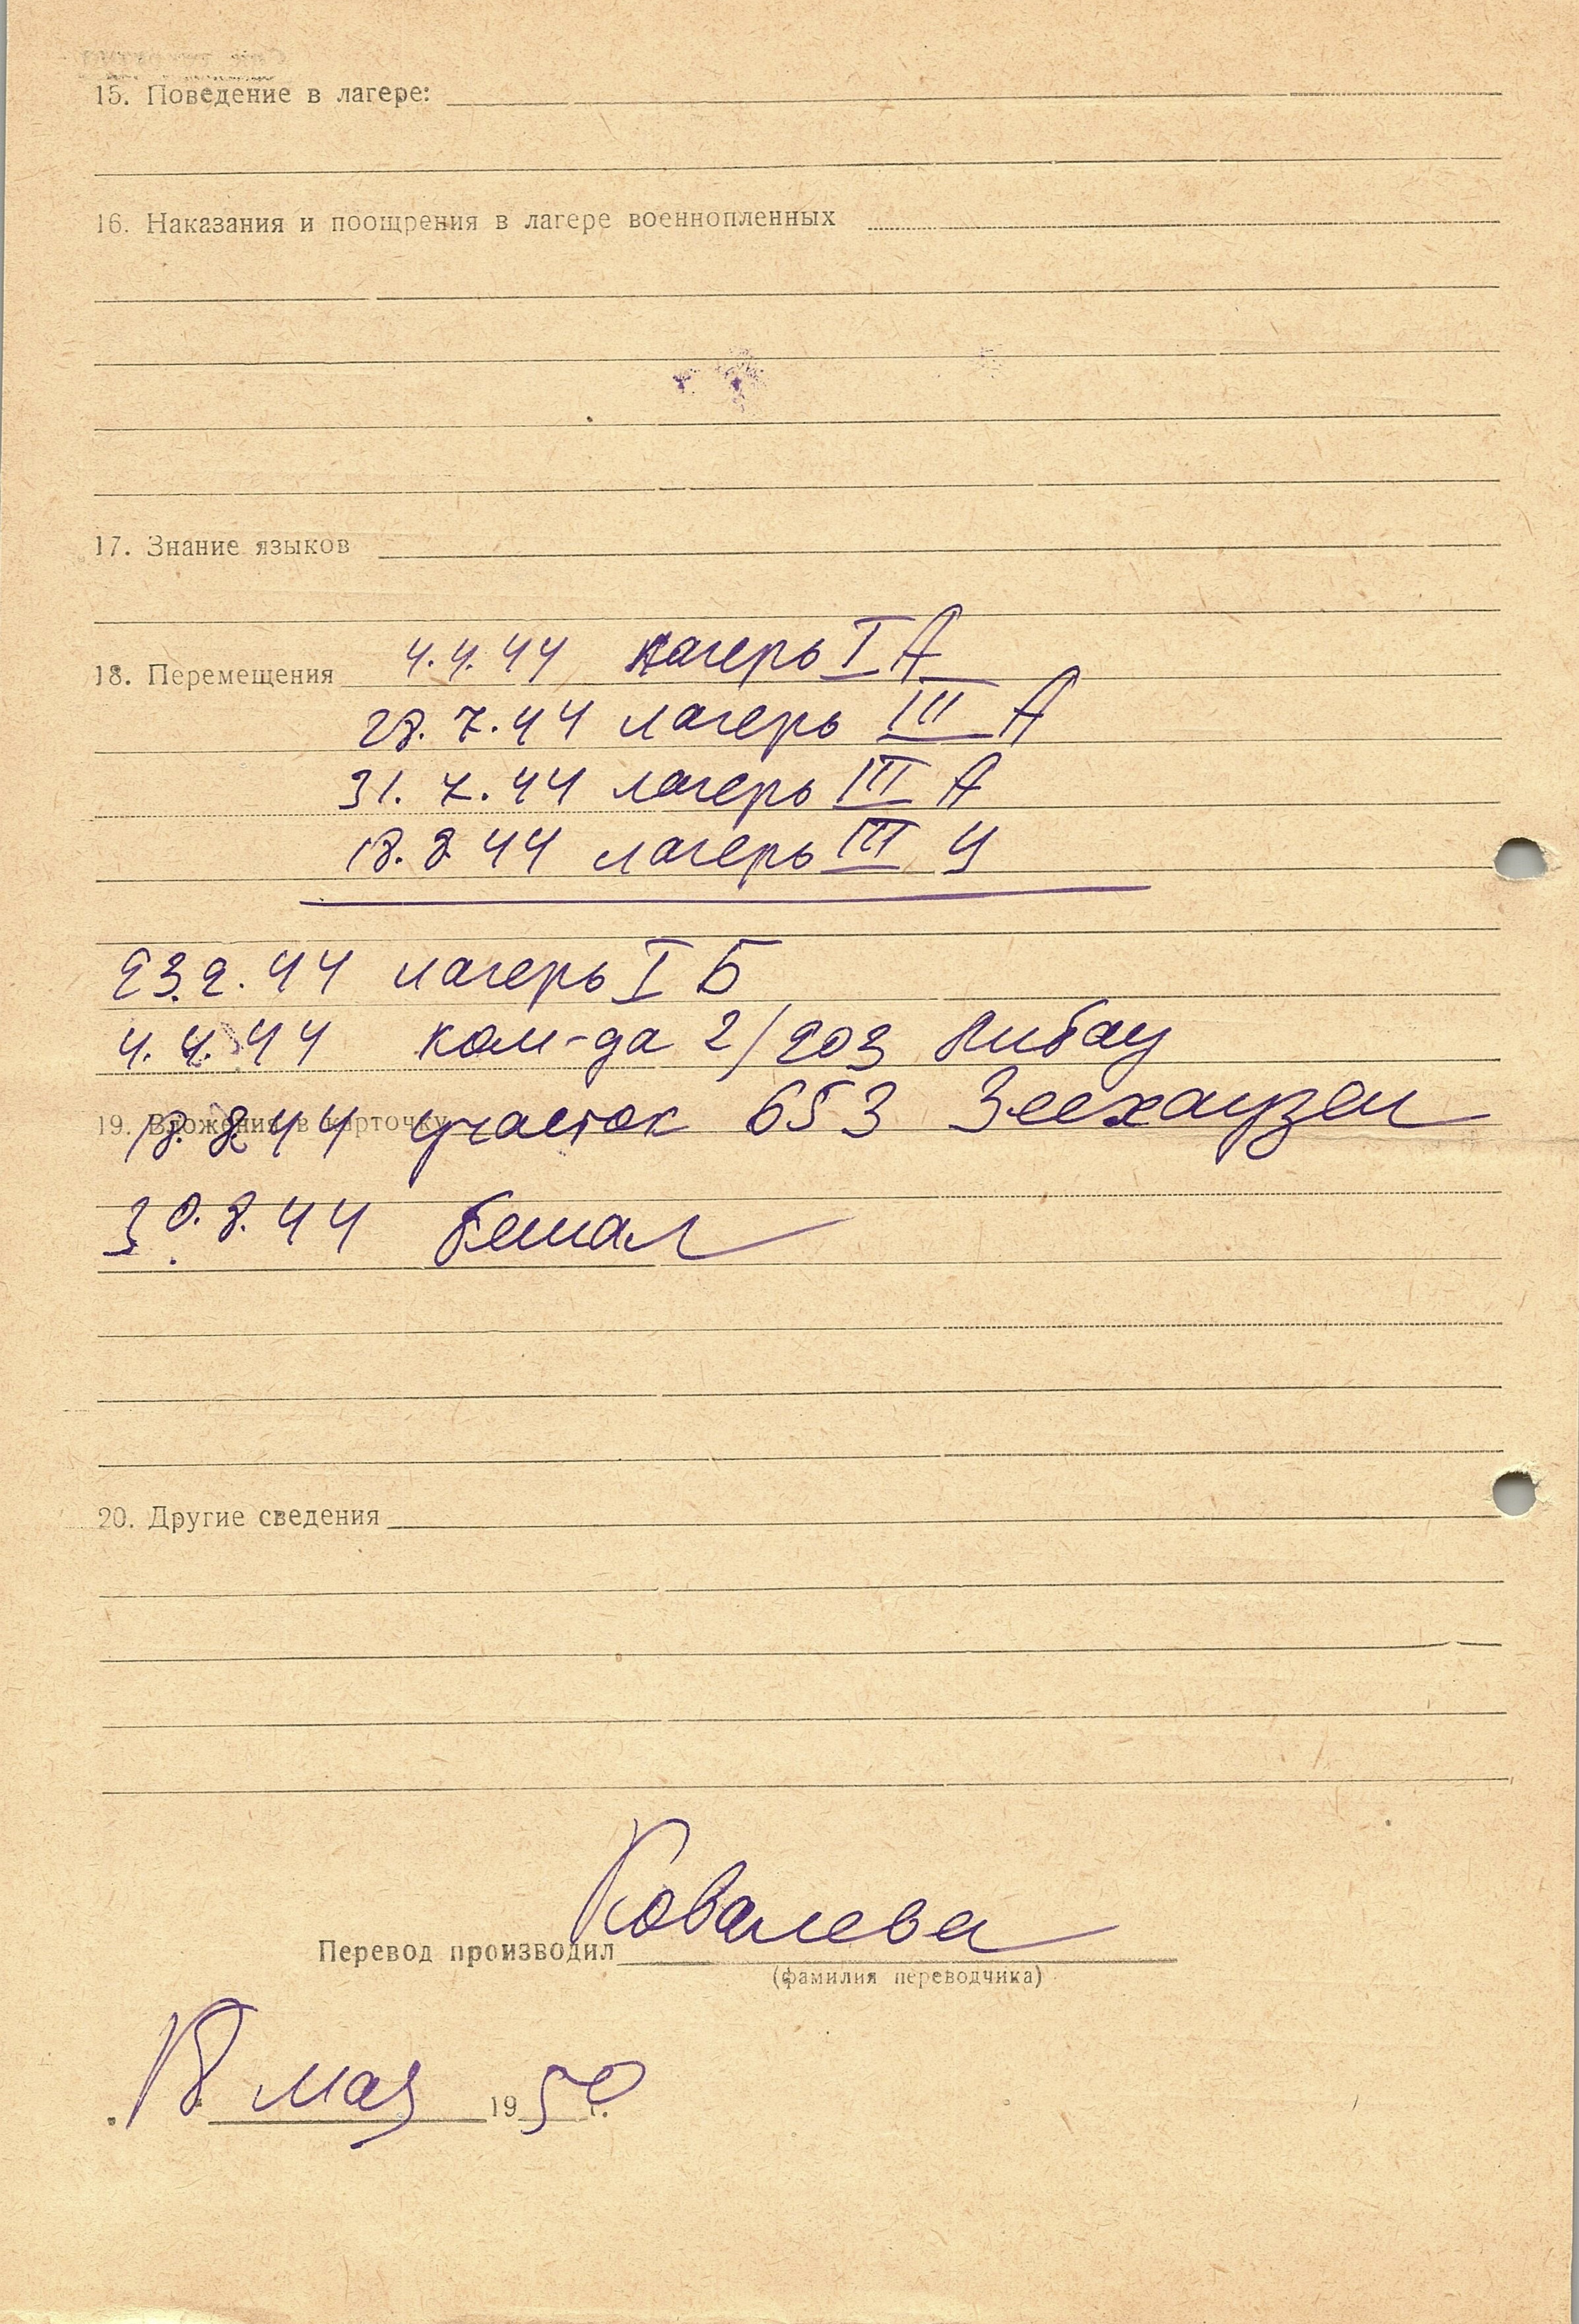 15. Поведение в лагере:
16. Наказания и поощрения в лагере военнопленных
17. Знание языков
18. Перемещения 4.4.44 лагерь I А
28.7.44 лагерь III А
31.7.44 лагерь III А
18.8.44 лагерь III Ц
23.2.44 лагерь I Б
4.4.44 ком-да 2/203 Либау
19. Вложения в карточку
18.8.44 участок 653 Зеехаузен
30.8.44 бежал
20. Другие сведения
Ковалева
Перевод производил
(фамилия переводчика)
18 мая 1950 г.